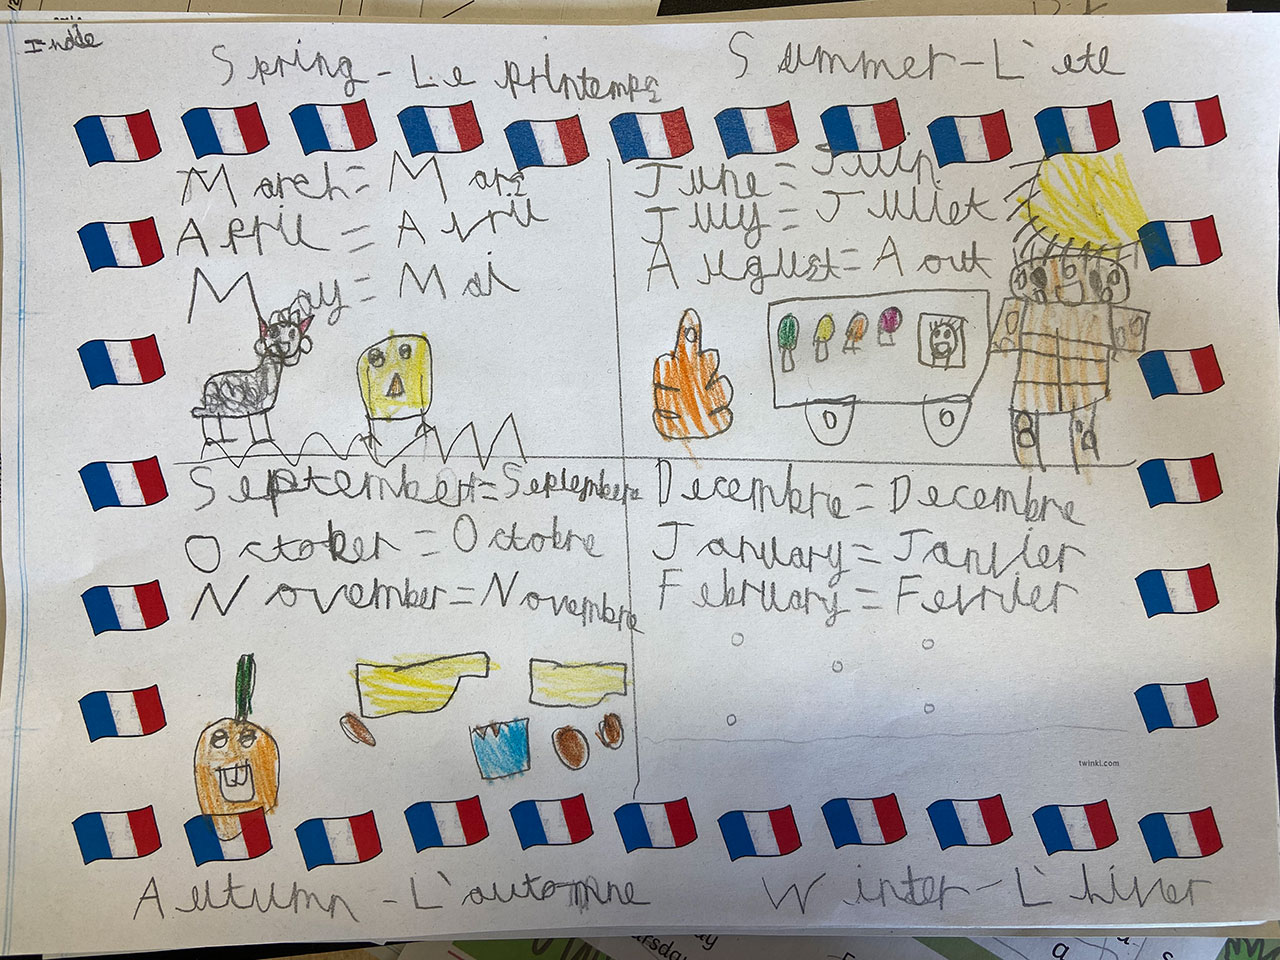 Spring - Le printemps
Summer - L'ete
March = Mars
April = Avril
May = Mai
June = Juin
July = Juillet
August = Aout
September = Septembre
October = Octobre
November = Novembre
Decembre = Decembre
January = Janvier
February = Fevrier
twinkl.com
Autumn - L'automne
Winter - L'hiver